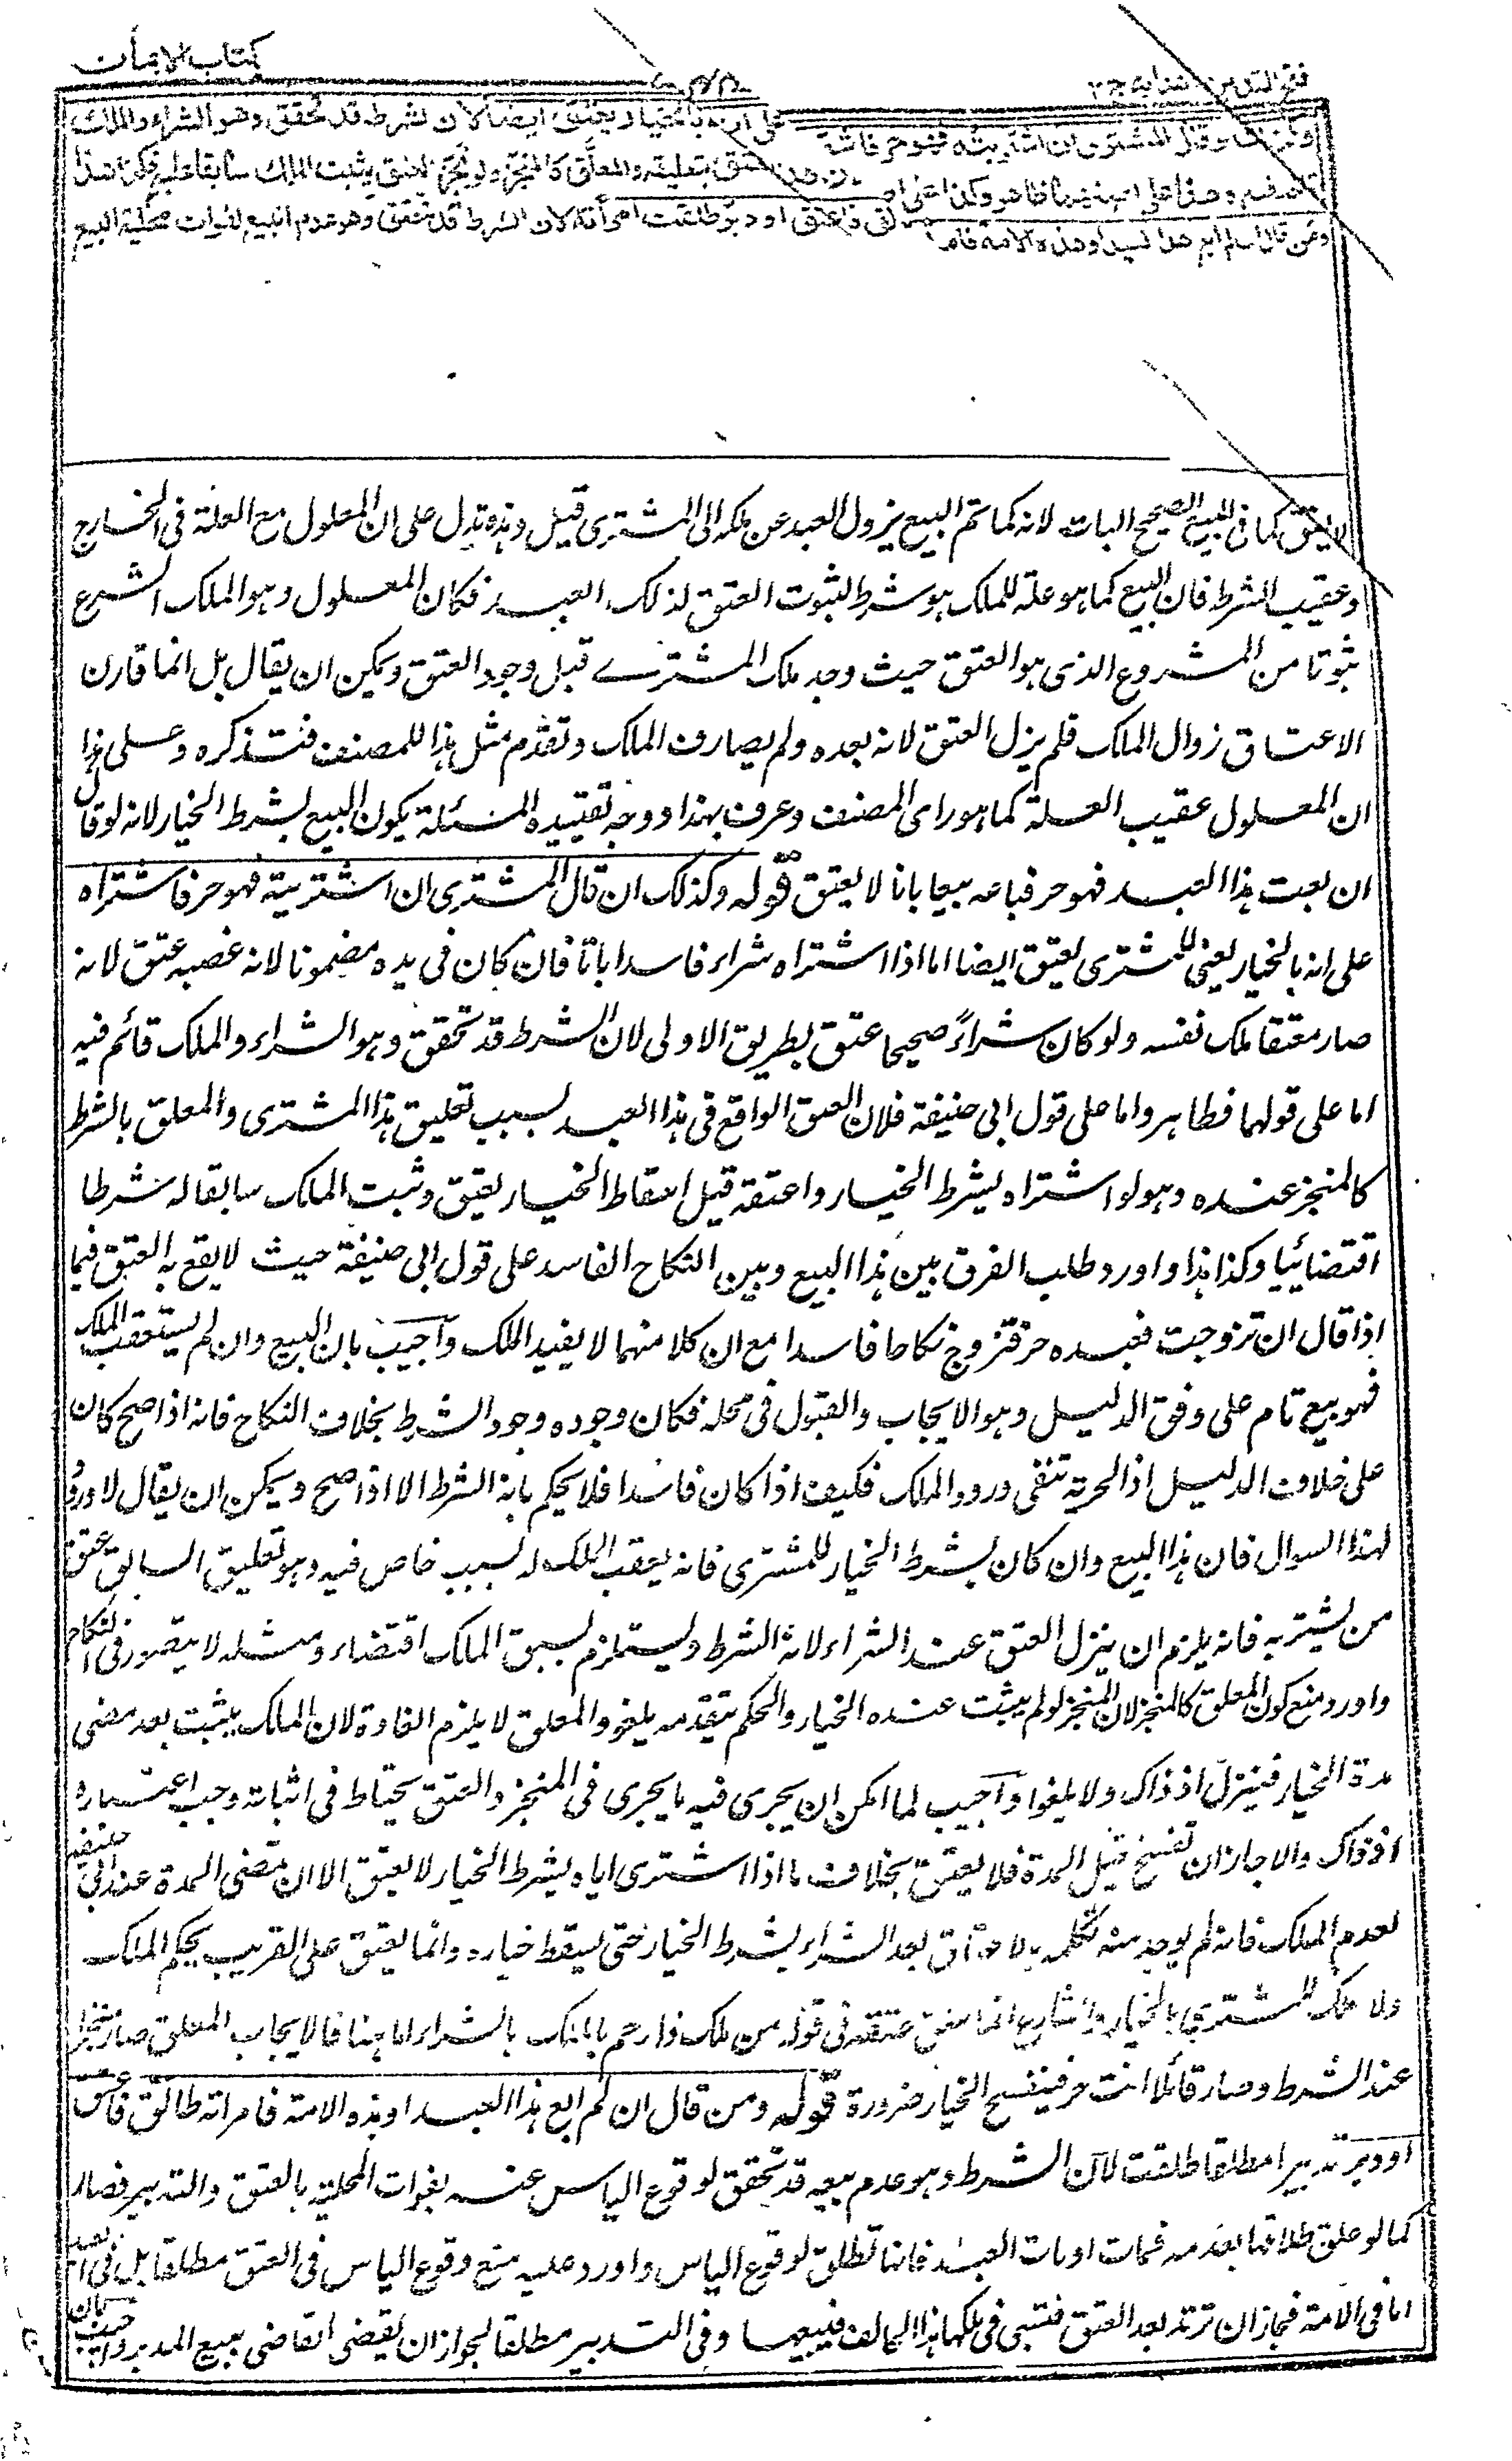 كتاب الايمان
فتح القدير
وكذلك لو قال المشترى ان اشتريته فهو حر فاشتراه على انه بالخيار يعتق ايضا لان الشرط قد تحقق وهو الشراء والملك
قائم فيه وهذا على اصلهما ظاهر وكذا على اصله لان هذا العتق بتعليقه والمعلق كالمنجز ولو نجز العتق يثبت الملك سابقا عليه فكذا هذا
ومن قال ان لم ابع هذا العبد او هذه الامة فامرأته طالق فاعتق او دبر طلقت امرأته لان الشرط قد تحقق وهو عدم البيع لفوات محلية البيع
لا يعتق كما فى البيع الصحيح البات لانه كما تم البيع يزول العبد عن ملكه الى المشترى قيل وهذه تدل على ان المعلول مع العلة فى الخارج
وعقيب الشرط فان البيع كما هو علة للملك هو شرط لثبوت العتق لذلك العبد فكان المعلول وهو الملك اسرع
ثبوتا من المشروع الذى هو العتق حيث وجد ملك المشترے قبل وجود العتق ويمكن ان يقال بل انما قارن
الاعتاق زوال الملك فلم يزل العتق لانه بعده ولم يصادف الملك وتقدم مثل هذا للمصنف فتذكره وعلى هذا
ان المعلول عقيب العلة كما هو راى المصنف وعرف بهذا ووجه تقييده المسئلة بكون البيع بشرط الخيار لانه لو قال
ان بعت هذا العبد فهو حر فباعه بيعا باتا لا يعتق قوله وكذلك ان قال المشترى ان اشتريته فهو حر فاشتراه
على انه بالخيار يعنى للمشترى يعتق ايضا اما اذا اشتراه شراء فاسدا باتا فان كان فى يده مضمونا لانه غصبه عتق لانه
صار معتقا ملك نفسه ولو كان شراءً صحيحا عتق بطريق الاولى لان الشرط قد تحقق وهو الشراء والملك قائم فيه
اما على قولهما فظاهر واما على قول ابى حنيفة فلان العتق الواقع فى هذا العبد بسبب تعليق هذا المشترى والمعلق بالشرط
كالمنجز عنده وهو لو اشتراه بشرط الخيار واعتقه قبل اسقاط الخيار يعتق وثبت الملك سابقا له شرطا
اقتضائيا وكذا هذا واورد طلب الفرق بين هذا البيع وبين النكاح الفاسد على قول ابى حنيفة حيث لا يقع به العتق فيما
اذا قال ان تزوجت فعبده حر فتزوج نكاحا فاسدا مع ان كلا منهما لا يفيد الملك وأجيب بان البيع وان لم يستعقب الملك
فهو بيع تام على وفق الدليل وهو الايجاب والقبول فى محله فكان وجوده وجود الشرط بخلاف النكاح فانه اذا صح كان
على خلاف الدليل اذ الحرية تنفى ورود الملك فكيف اذا كان فاسدا فلا يحكم بانه الشرط الا اذا صح ويمكن ان يقال لا ورود
لهذا السوال فان هذا البيع وان كان بشرط الخيار للمشترى فانه يعقب الملك له لسبب خاص فيه وهو تعليق السابق عتق
من يشتريه فانه يلزم ان ينزل العتق عند الشراء لانه الشرط ويستلزم لسبق الملك اقتضاء ومثله لا يتصور فى النكاح
واورد منع كون المعلق كالمنجز لان المنجز لو لم يثبت عنده الخيار والحكم بتقدمه يلغو والمعلق لا يلزم الغاؤه لان الملك يثبت بعد مضى
مدة الخيار فينزل اذ ذاك ولا يلغو وأجيب لما امكن ان يجرى فيه ما يجرى فى المنجز والعتق يحتاط فى اثباته وجب اعتباره
اذ ذاك والا جاز ان تفسخ قبل المدة فلا يعتق بخلاف ما اذا اشترى اباه بشرط الخيار لا يعتق الا ان تمضى المدة عند ابى حنيفة
لعدم الملك فانه لم يوجد منه تكلمه بالاعتاق بعد الشراء بشرط الخيار حتى يسقط خياره وانما يعتق على القريب بحكم الملك
ولا ملك للمشترى بالخيار والشارع انما علق عتقه فى قوله من ملك ذا رحم بالملك لا بالشراء اما هنا فالايجاب المعلق صار منجزا
عند الشرط وصار قائلا انت حر فينفسخ الخيار ضرورة قوله ومن قال ان لم ابع هذا العبد او هذه الامة فامراته طالق فاعتق
او دبر تدبيرا مطلقا طلقت لان الشرط وهو عدم بيعه قد تحقق لوقوع الياس عنه بفوات المحلية بالعتق والتدبير فصار
كما لو علق طلاقها بعدمه فمات او مات العبد فانها تطلق لوقوع الياس واورد عليه منع وقوع الياس فى العتق مطلقا بل فى العبد
اما فى الامة فجاز ان ترتد بعد العتق فتسبى فيملكها هذا الحالف فيبيعها وفى التدبير مطلقا لجواز ان يقضى القاضى ببيع المدبر واجيب